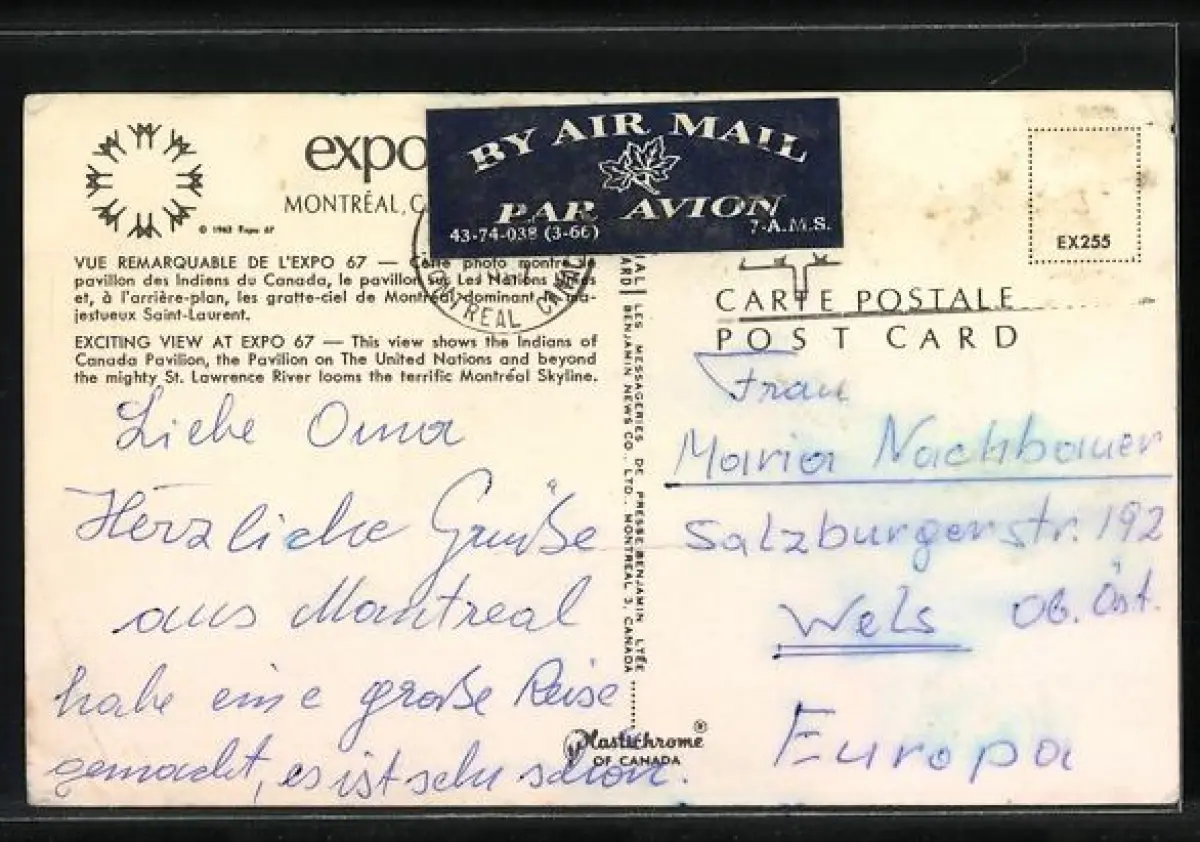 expo
MONTRÉAL, C
© 1963 Expo 67
BY AIR MAIL
PAR AVION
43-74-038 (3-66)
7-A.M.S.
EX255
VUE REMARQUABLE DE L'EXPO 67 — Cette photo montre le
pavillon des Indiens du Canada, le pavillon sur Les Nations Unies
et, à l'arrière-plan, les gratte-ciel de Montréal dominant le ma-
jestueux Saint-Laurent.
EXCITING VIEW AT EXPO 67 — This view shows the Indians of
Canada Pavilion, the Pavilion on The United Nations and beyond
the mighty St. Lawrence River looms the terrific Montréal Skyline.
MONTREAL
Liebe Oma
Herzliche Grüße
aus Montreal
habe eine große Reise
gemacht, es ist sehr schön.
LES MESSAGERIES DE PRESSE BENJAMIN LTÉE
BENJAMIN NEWS CO., LTD., MONTREAL 3, CANADA
Plastichrome®
OF CANADA
CARTE POSTALE
POST CARD
Frau
Maria Nachbauer
Salzburgerstr. 192
Wels Ob. Öst.
Europa